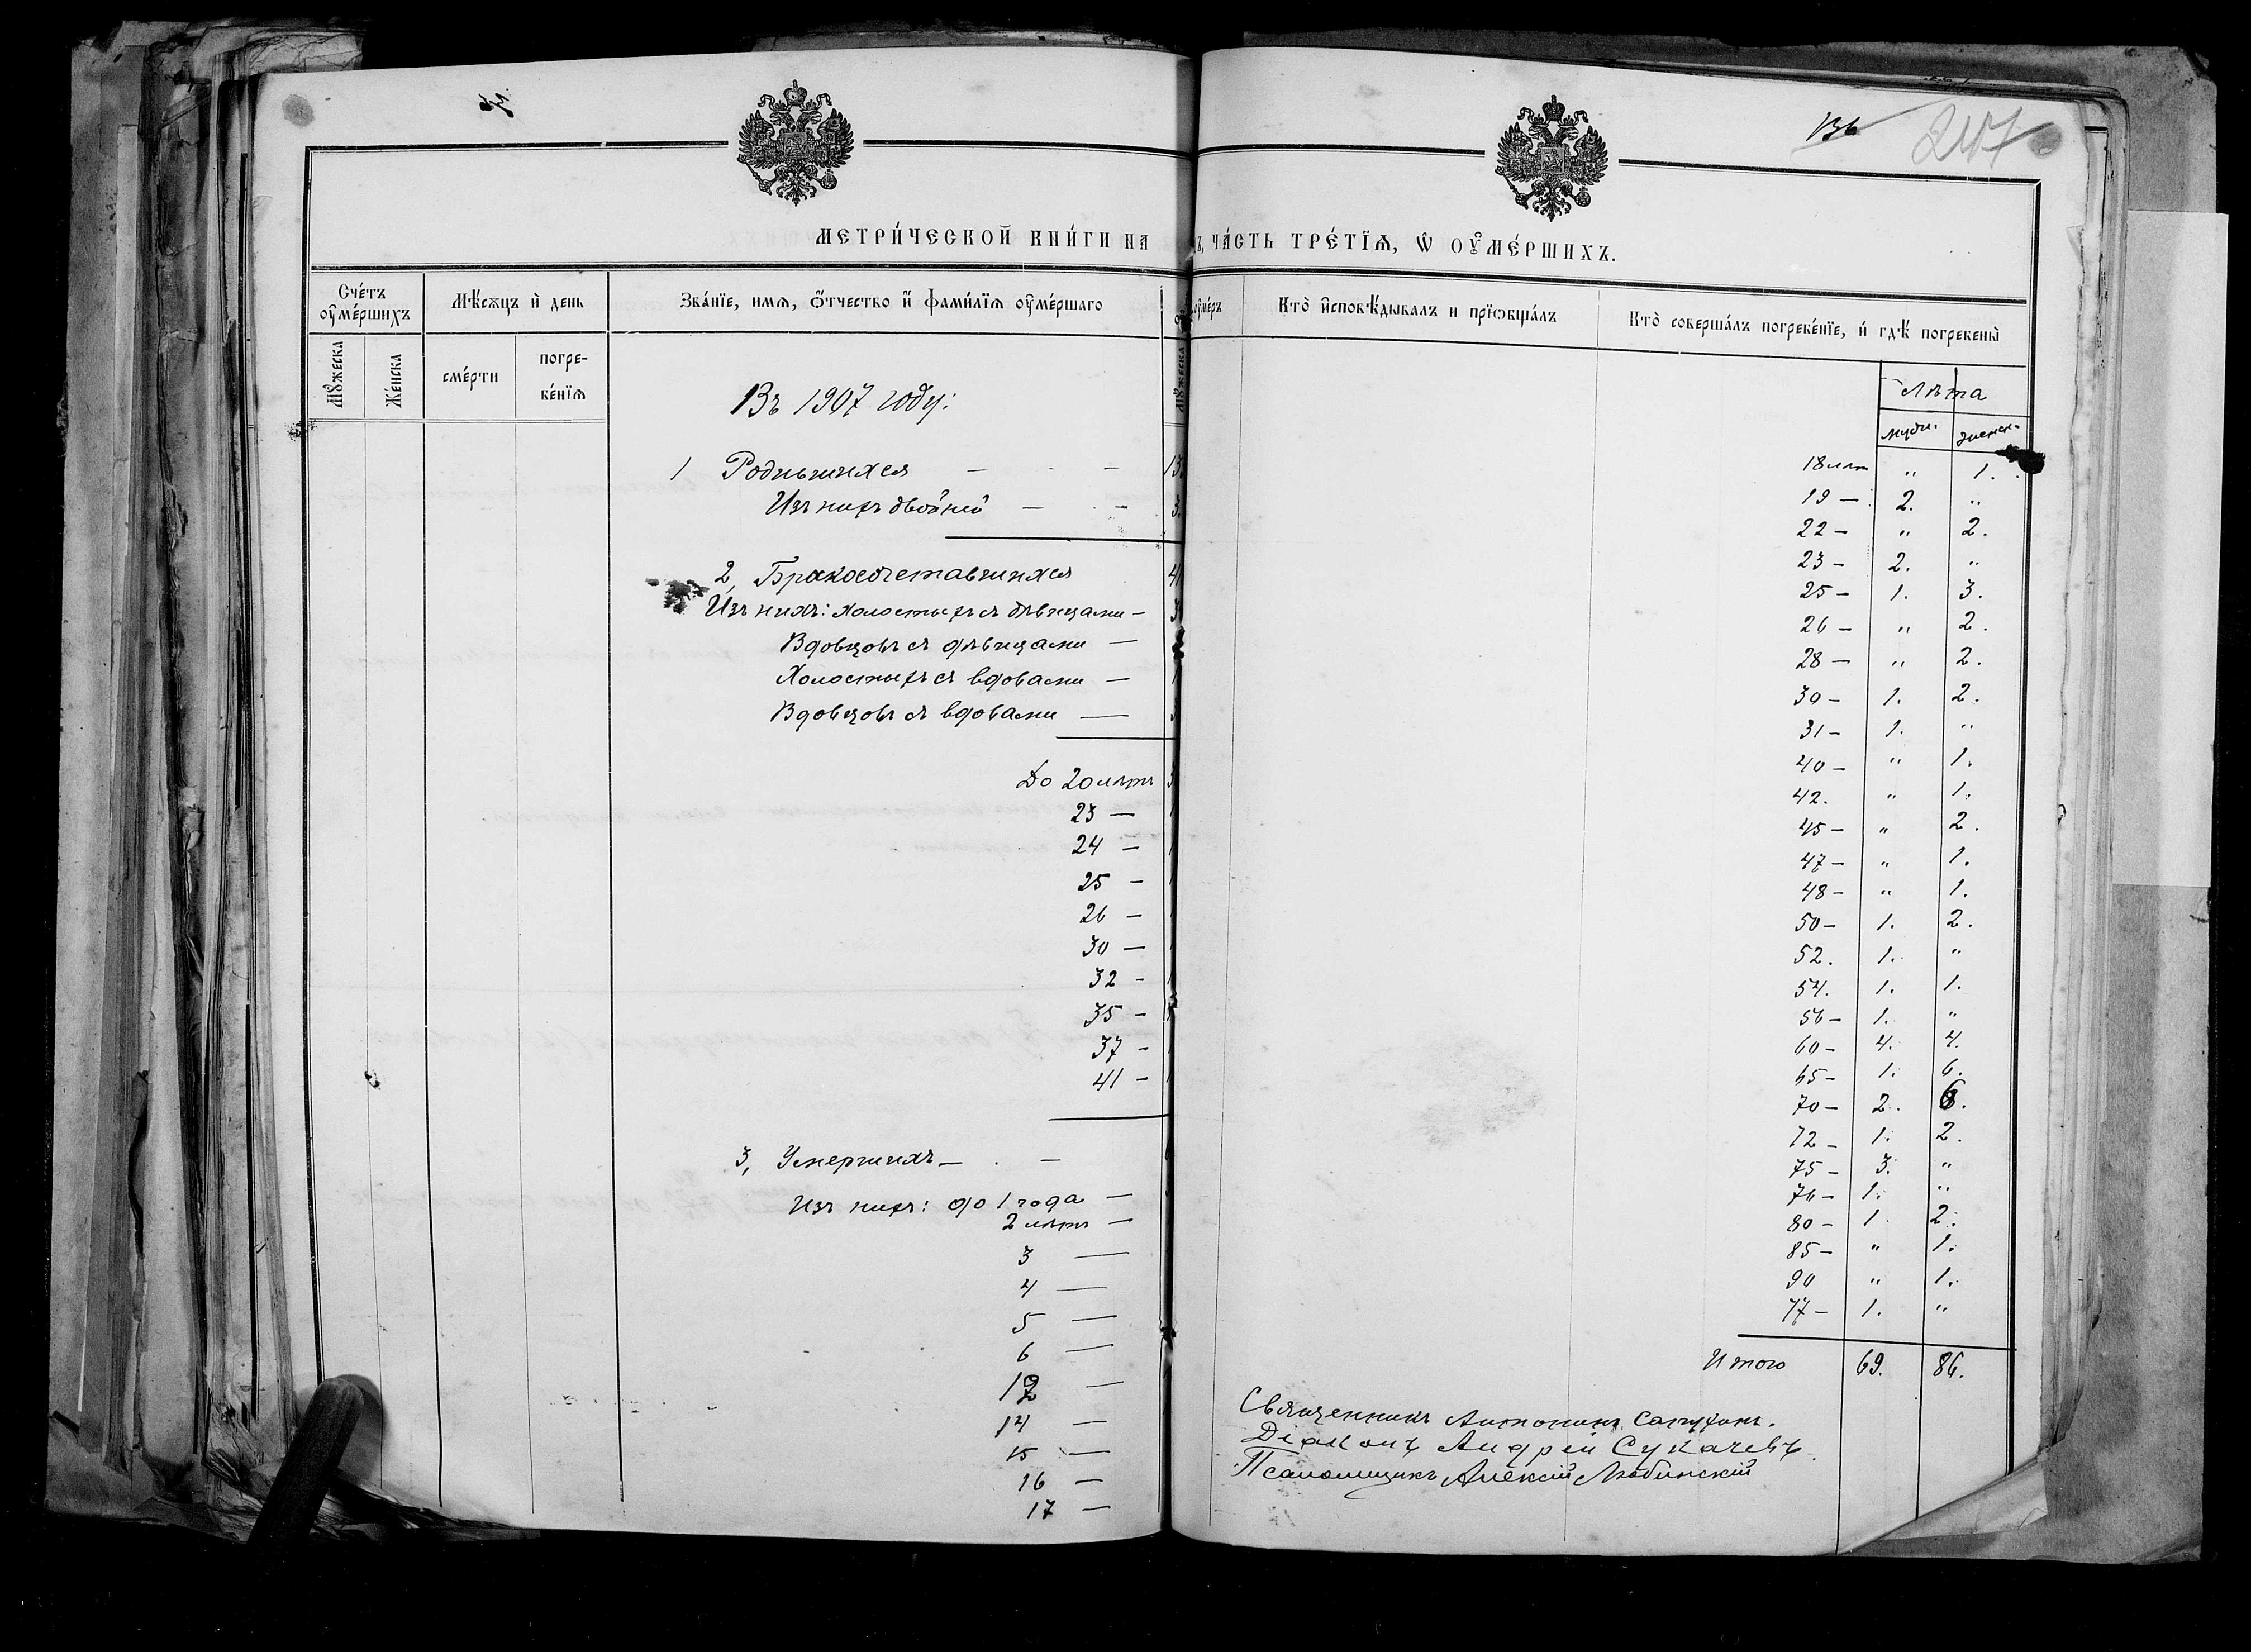 136 247
МЕТРИ́ЧЕСКОЙ КНИ́ГИ НА
Ъ, ЧА́СТЬ ТРЕ́ТЇѦ, Ѡ҆ ОУ҆МЕ́РШИХЪ.
Сче́тъ оу҆ме́ршихъ
Мѣ́сѧцъ и҆ день
Зва́нїе, имѧ, ѻ҆́тчество и҆ фами́лїѧ оу҆ме́ршаго
оу҆ме́ръ
Кто̀ и҆сповѣ́дывалъ и прїѡбща́лъ
Кто̀ соверша́лъ погребе́нїе, и҆ гдѣ́ погребены̀
Мꙋ́жеска
Же́нска
сме́рти
погре-
бе́нїѧ
Мꙋ́жеска
Въ 1907 году:
1 Родившихся — - — 13
Изъ нихъ двойней — - — 3.
2, Бракосочетавшихся 41
Изъ нихъ: холостыхъ съ дѣвицами — 3
Вдовцовъ съ дѣвицами —
Холостыхъ съ вдовами — 1
Вдовцовъ съ вдовами —
До 20 лѣтъ 3
23 — 1
24 — 1
25 — 1
26 — 1
30 — 1
32 - 1
35 -
37 - 1
41 - 1
3, Умершихъ — . —
Изъ нихъ: до 1 года —
2 лѣтъ —
3 —
4 —
5 —
6 —
12 —
14 —
15 —
16 —
17 —
Лѣта
муж. женск.
18 лѣт " 1.
19 — 2. "
22 — " 2.
23 — 2. "
25 — 1. 3.
26 — " 2.
28 — " 2.
30 — 1. 2.
31 — 1. "
40 — " 1.
42. " 1.
45 — " 2.
47 — " 1.
48 — " 1.
50 — 1. 2.
52. 1. "
54. 1. 1.
56 — 1. "
60 — 4. 4.
65 — 1. 6.
70 — 2. 6.
72 — 1. 2.
75 — 3. "
76 — 1. "
80 — 1 2.
85 — " 1.
90 " 1.
77 — 1. "
Итого 69. 86.
Священникъ Антонинъ
Діаконъ Андрей Сукачевъ.
Псаломщикъ Алексій Любинскій